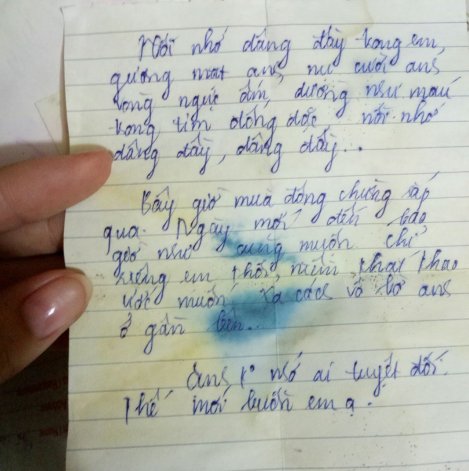 Nỗi nhớ dâng đầy trong em,
gương mặt anh, nụ cười anh
vòng ngực ấm, dường như máu
trong tim đông đặc nỗi nhớ
dâng đầy, dâng đầy...
Bây giờ mùa đông chừng sắp
qua. Ngày mới đến bao
giờ như cũng muốn chỉ
riêng em thôi, niềm khát khao
ước muốn và cách vô bờ anh
ở gần bên...
Anh, nhớ ai tuyệt đối.
Thế mới buồn em ạ.